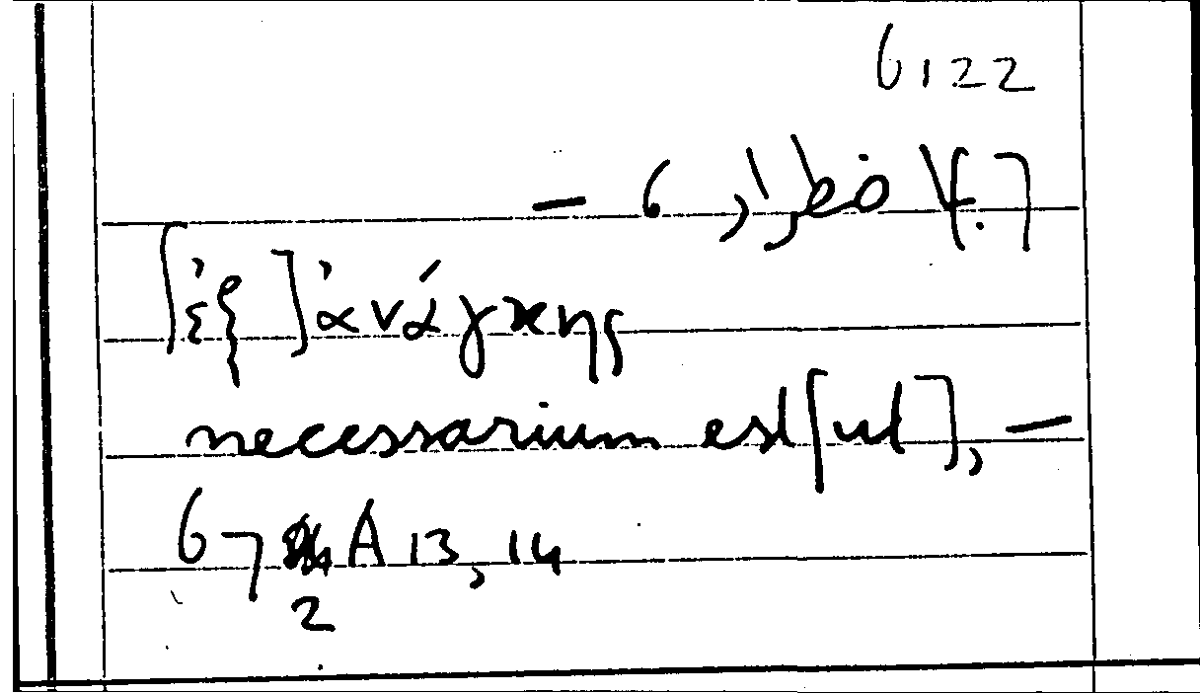 6,22
[ب]اضطرار , 6 –
[ἐξ] ἀνάγκης
necessarium est [ut], –
67 A 13, 14
2